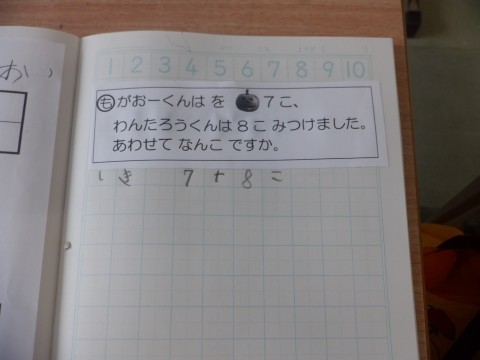 1 2 3 4 5 6 7 8 9 10
も がおーくんは を 7こ、
わんたろうくんは 8こ みつけました。
あわせて なんこ ですか。
しき 7+8こ